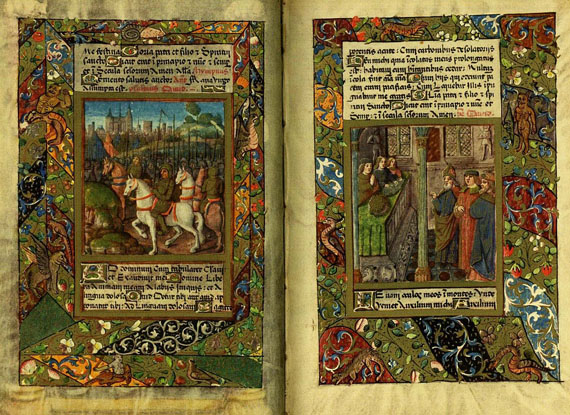 me festina Gloria patri et filio & Spiritui
sancto Sicut erat i principio & nūc & semp
et i Secula seculorum Amen
Memento salutis auctor
Ad dominum Cum tribularer Clamavi
et Exaudivit me Domine Libera
Animam meam A labiis Iniquis et A
lingua dolosa Quid Detur tibi aut quid ap
ponatur tibi: Ad Linguam dolosam Sagit
potentis acute: Cum carbonibus desolatoriis
Heu michi quia incolatus meus prolongatus
est: habitavi cum habitantibus cedar: Multum
incola fuit aīa mea Cum hiis qui oderunt pa
cem eram pacificus: Cum Loquebar illis ipu
gnabant me gratis Gloria patri et filio & spi
ritui Sancto Sicut erat i principio & nūc &
Semp & i secula seculorum Amen
Levavi oculos meos i montes: Unde
Veniet Auxilium michi Auxilium